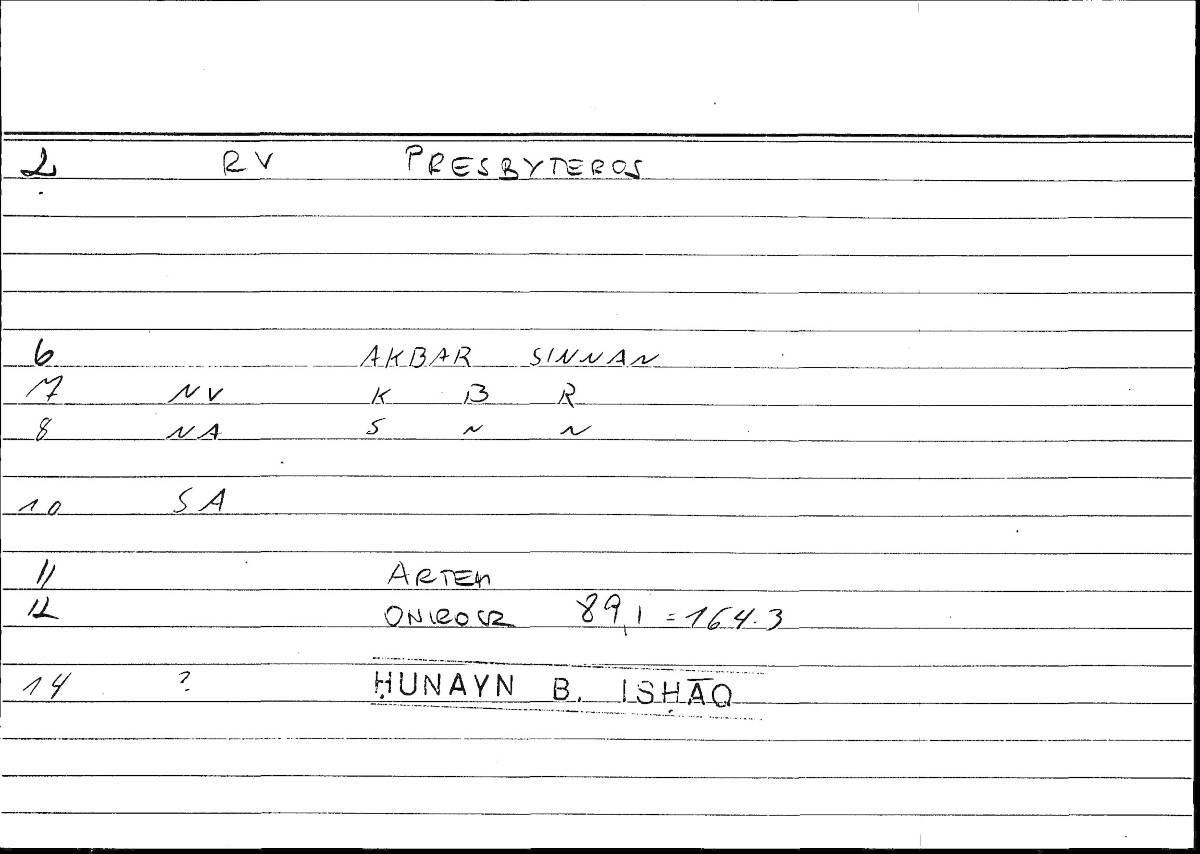 2 RV PRESBYTEROS
6 AKBAR SINNAN
7 NV K B R
8 NA S N N
10 SA
11 ARTEM
12 ONIROCR 89,1 = 164.3
14 ? ḤUNAYN B. ISḤĀQ